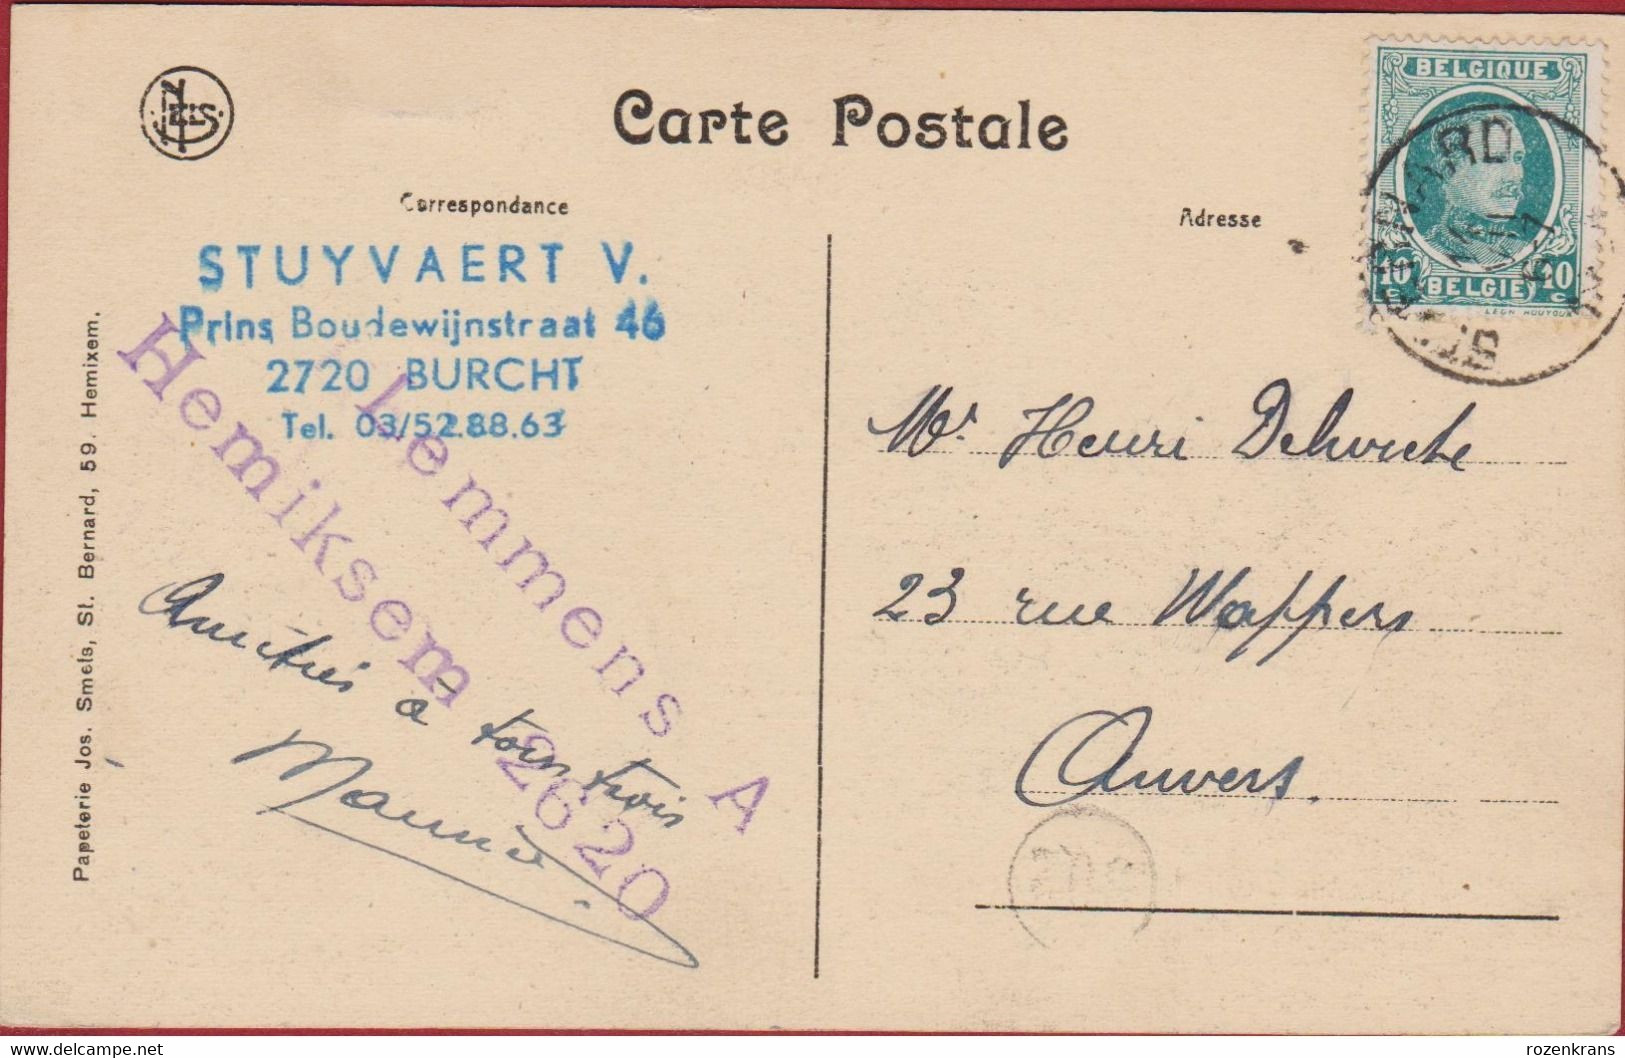 NELS
Carte Postale
BELGIQUE
10 c
BELGIE
10 c
Correspondance
Adresse
STUYVAERT V.
Prins Boudewijnstraat 46
2720 BURCHT
Tel. 03/52.88.63
Lemmens A
Hemiksem 2620
Amitiés à tous trois
Maurice
Papeterie Jos. Smets, St. Bernard, 59. Hemixem.
Mr Henri Delwiche
23 rue Wappers
Anvers.
rozenkrans
delcampe.net